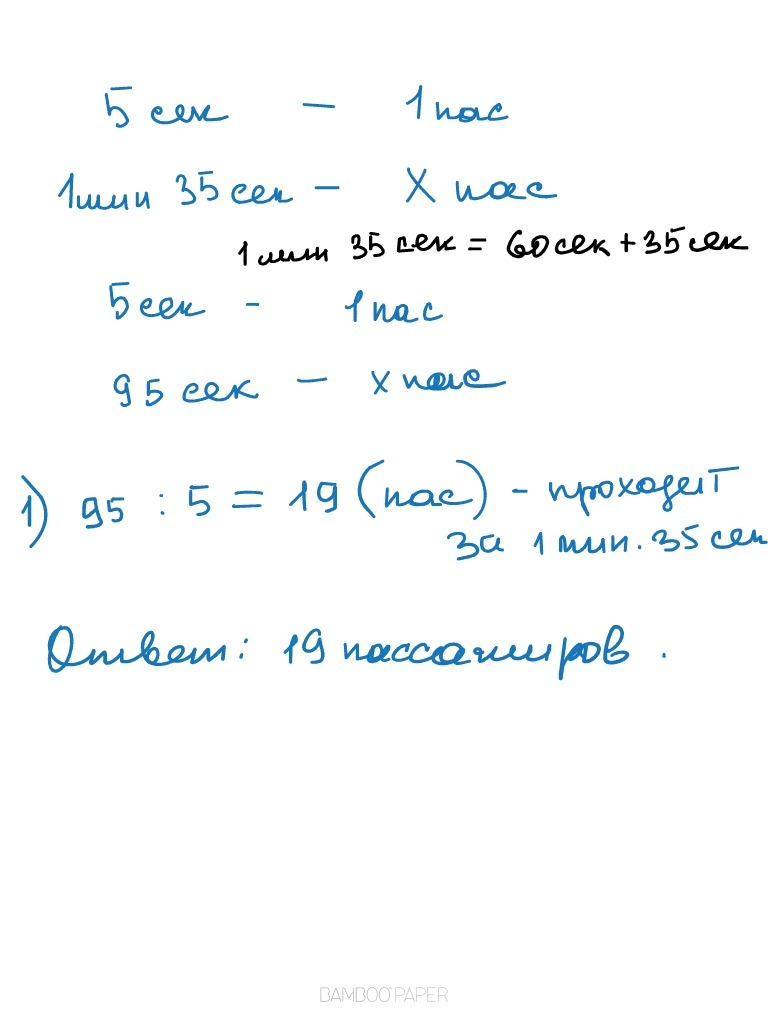 5 сек - 1 пас
1 мин 35 сек - X пас
1 мин 35 сек = 60 сек + 35 сек
5 сек - 1 пас
95 сек - x пас
1) 95 : 5 = 19 (пас) - проходит
за 1 мин. 35 сек
Ответ: 19 пассажиров.
BAMBOO PAPER